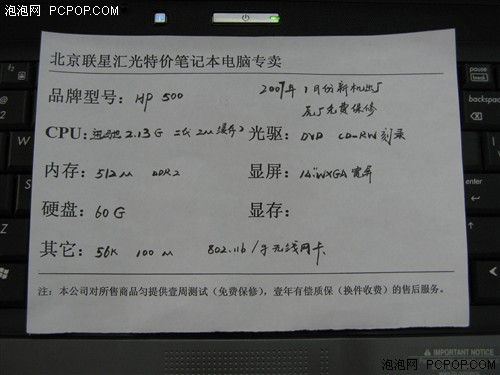 泡泡网 PCPOP.COM
泡泡网 PCPOP.COM
北京联星汇光特价笔记本电脑专卖
品牌型号：HP 500
2007年1月份新机出厂
免费保修
CPU：迅驰 2.13G 二代 2M缓存
光驱：DVD CD-RW刻录
内存：512M DDR2
显屏：14"WXGA宽屏
硬盘：60G
显存：
其它：56K 100M 802.11b/g无线网卡
注：本公司对所售商品匀提供壹周测试（免费保修），壹年有偿质保（换件收费）的售后服务。
IMPORTANT NOTICE
泡泡网 PCPOP.COM
泡泡网 PCPOP.COM